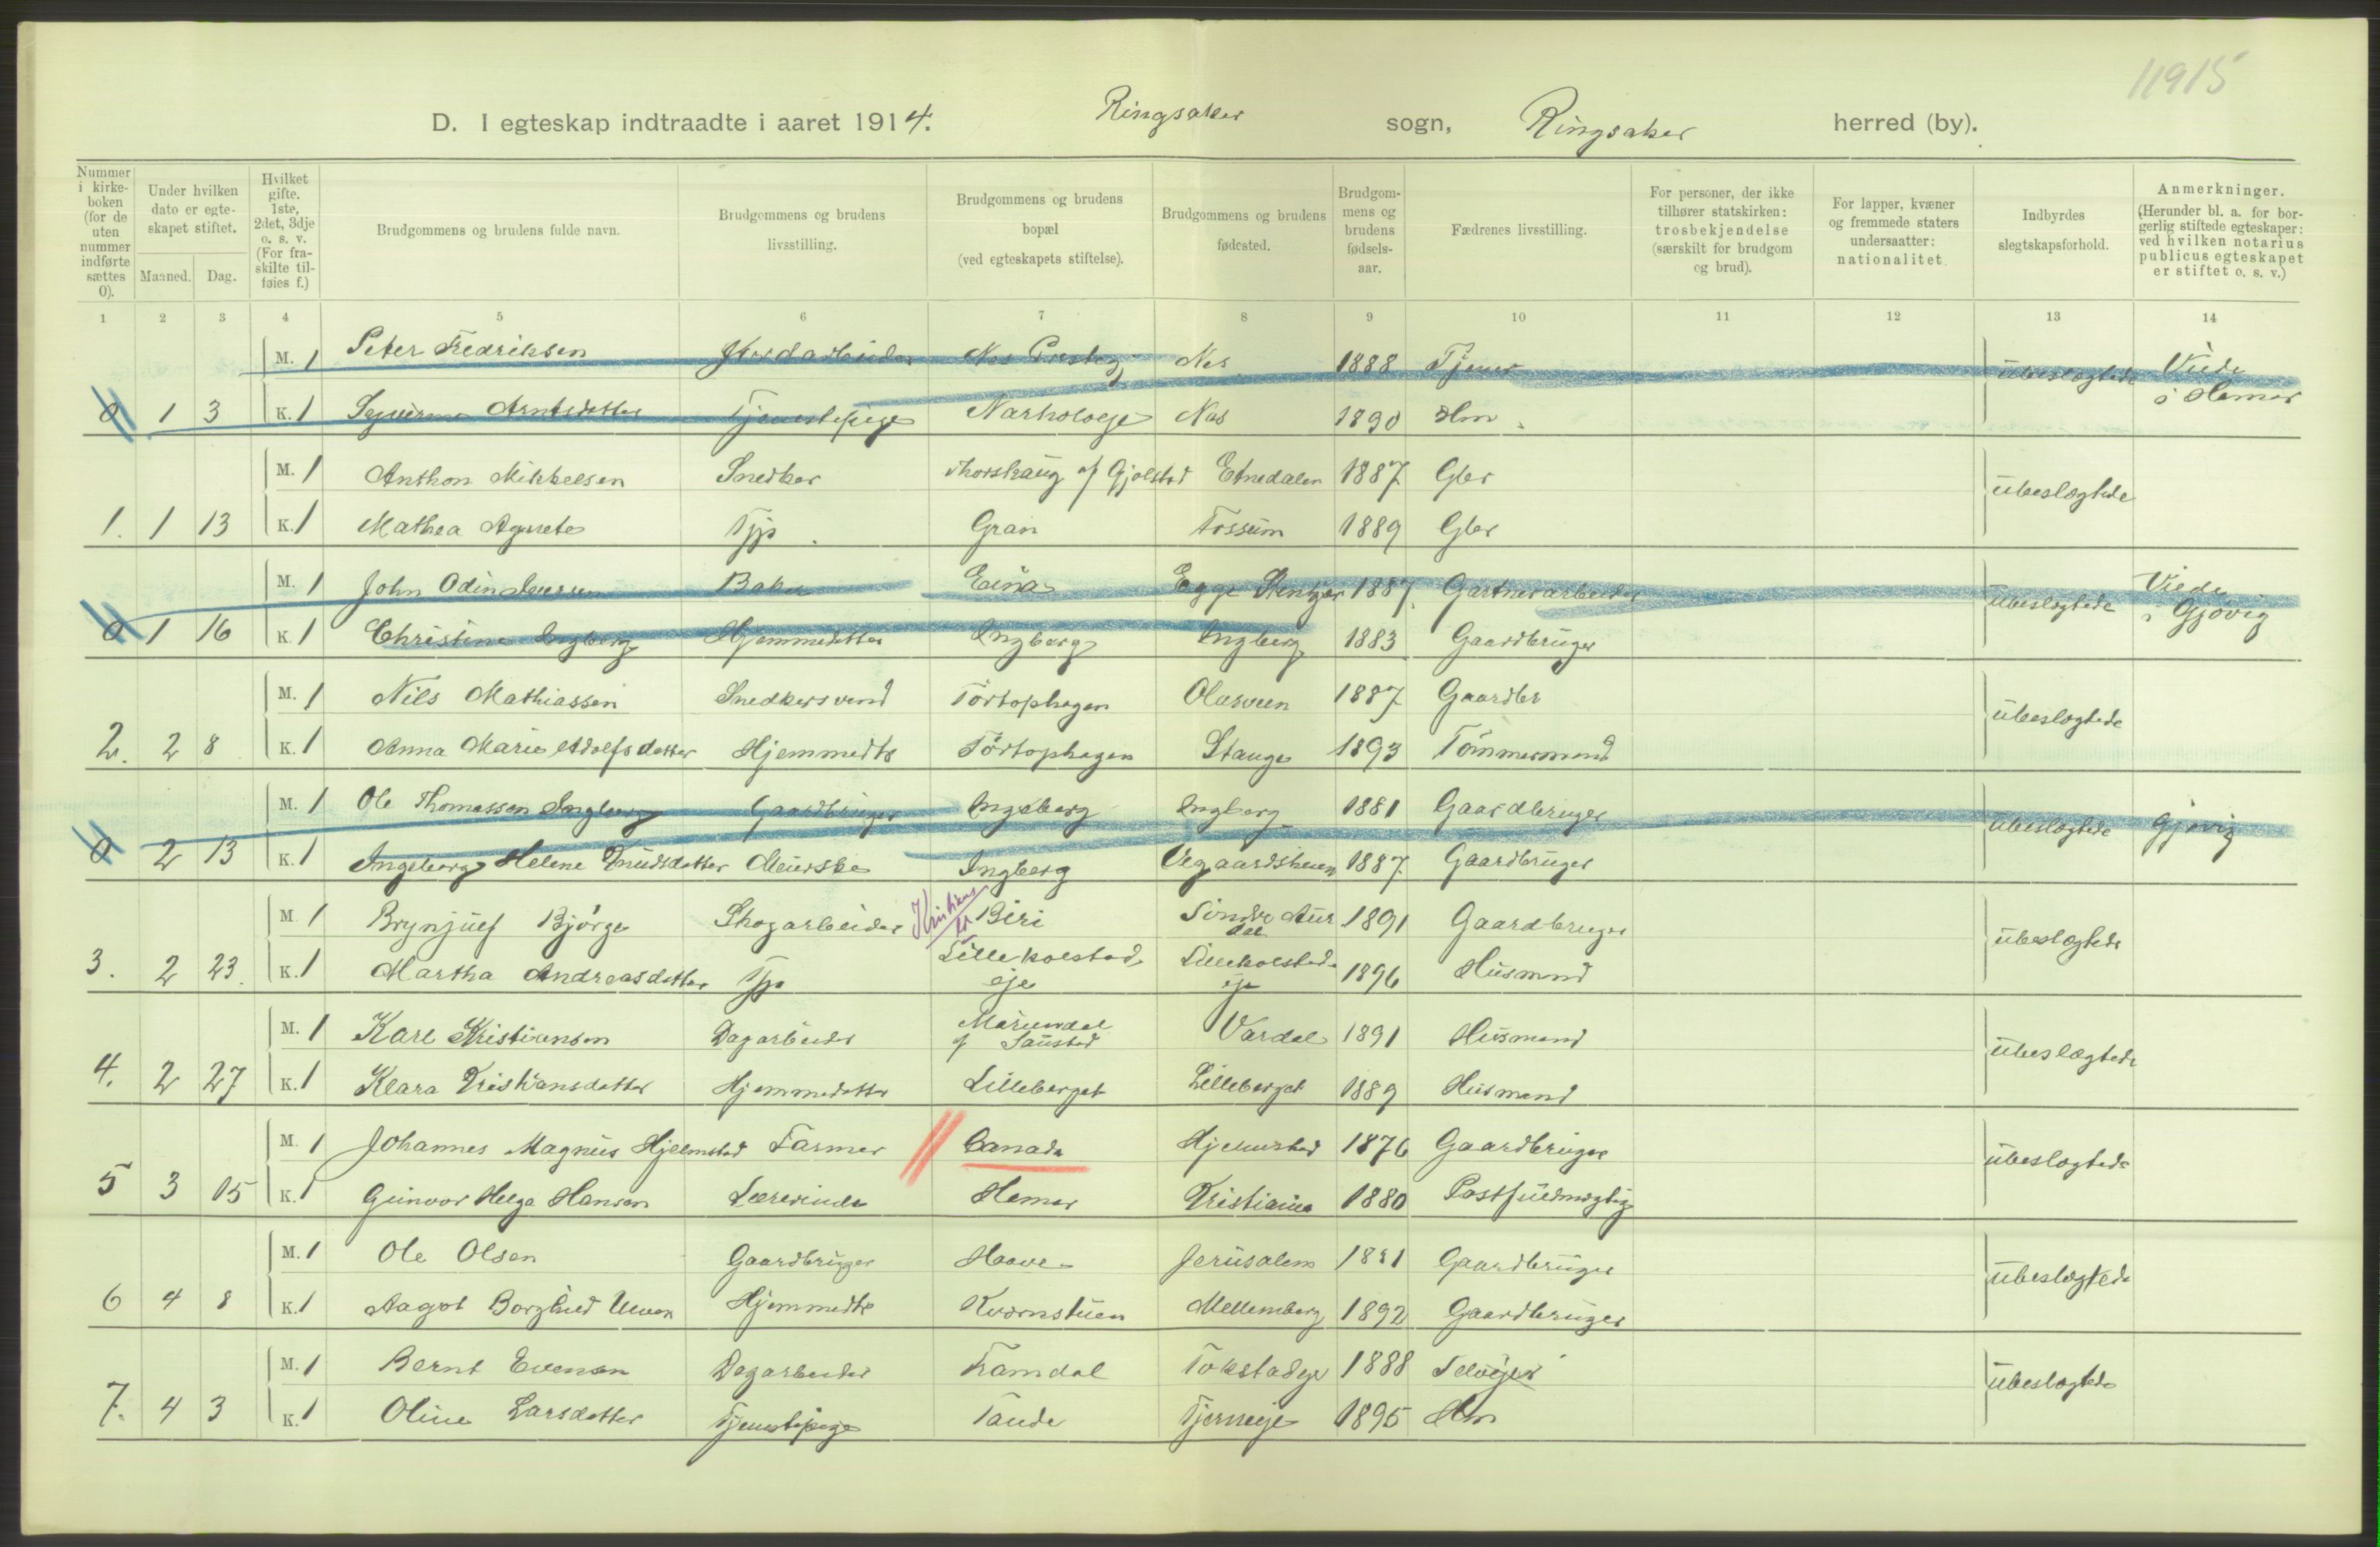 11915
D. I egteskap indtraadte i aaret 1914. Ringsaker sogn, Ringsaker herred (by).
Nummer i kirke- boken (for de uten nummer indførte sættes 0).
Under hvilken dato er egte- skapet stiftet.
Maaned. Dag.
Hvilket gifte. 1ste, 2det, 3dje o. s. v. (For fra- skilte til- føies f.)
Brudgommens og brudens fulde navn.
Brudgommens og brudens livsstilling.
Brudgommens og brudens bopæl (ved egteskapets stiftelse).
Brudgommens og brudens fødested.
Brudgom- mens og brudens fødsels- aar.
Fædrenes livsstilling.
For personer, der ikke tilhører statskirken: trosbekjendelse (særskilt for brudgom og brud).
For lapper, kvæner og fremmede staters undersaatter: nationalitet.
Indbyrdes slegtskapsforhold.
Anmerkninger. (Herunder bl. a. for bor- gerlig stiftede egteskaper: ved hvilken notarius publicus egteskapet er stiftet o. s. v.)
1 2 3 4 5 6 7 8 9 10 11 12 13 14
M. 1 Peter Fredriksen Jordarbeider Nes Prestegj Nes 1888 Tjener ubeslegtede Viede i Hamar
0 1 3 K. 1 Arntsdatter Tjenestepige Nes 1890 Hm.
M. 1 Anthon Mikkelsen Snedker Thorshaug af Gjølstad Etnedalen 1887 Gbr ubeslegtede
1. 1 13 K. 1 Mathea Agnete Tjp. Gran Fossum 1889 Gbr
M. 1 John Odin Baker Eina Egge Stenkjær 1887. Gartnerarbeider ubeslegtede Viede i Gjøvig
0 1 16 K. 1 Christine Ingberg Hjemmedatter Ingberg Ingberg 1883 Gaardbruger
M. 1 Nils Mathiassen Snedkersvend Törtophagen Olasveen 1887 Gaardbr ubeslegtede
2. 2 8 K. 1 Anna Marie Adolfsdatter Hjemmedtr Törtophagen Stange 1893 Tömmermand
M. 1 Ole Thomassen Ingberg Gaardbruger Ingeberg Ingberg 1881 Gaardbruger ubeslegtede Gjøvig
0 2 13 K. 1 Ingeborg Helene Knudsdatter Meierske Ingberg Vegaardsheien 1887. Gaardbruger
M. 1 Brynjulf Bjørge Skogarbeider Biri Söndre Aurdal 1891 Gaardbruger ubeslegtede
3. 2 23. K. 1 Martha Andreasdatter Tjp Lillekolstadeje Lillekolstadeje 1896 Husmand
M. 1 Karl Kristiansen Dagarbeider Mariendal af Saustad Vardal 1891 Husmand ubeslegtede
4. 2 27 K. 1 Klara Kristiansdatter Hjemmedatter Lilleberget Lilleberget 1889 Husmand
M. 1 Johannes Magnus Hjelmstad Farmer Canada Hjelmstad 1876 Gaardbruger ubeslegtede
5 3 15 K. 1 Gunvor Helga Hansen Lærerinde Hamar Kristiania 1880 Postfuldmægtig
M. 1 Ole Olsen Gaardbruger Haave Jerusalem 1881 Gaardbruger ubeslegtede
6 4 8 K. 1 Aagot Borghild Hjemmedtr Kvernstuen Mellemberg 1892 Gaardbruger
M. 1 Bernt Evensen Dagarbeider Framdal Tokstadeje 1888 Selveier ubeslegtede
7. 4 3 K. 1 Oline Larsdatter Tjenestepige Tande Tjerneeje 1895 Hm